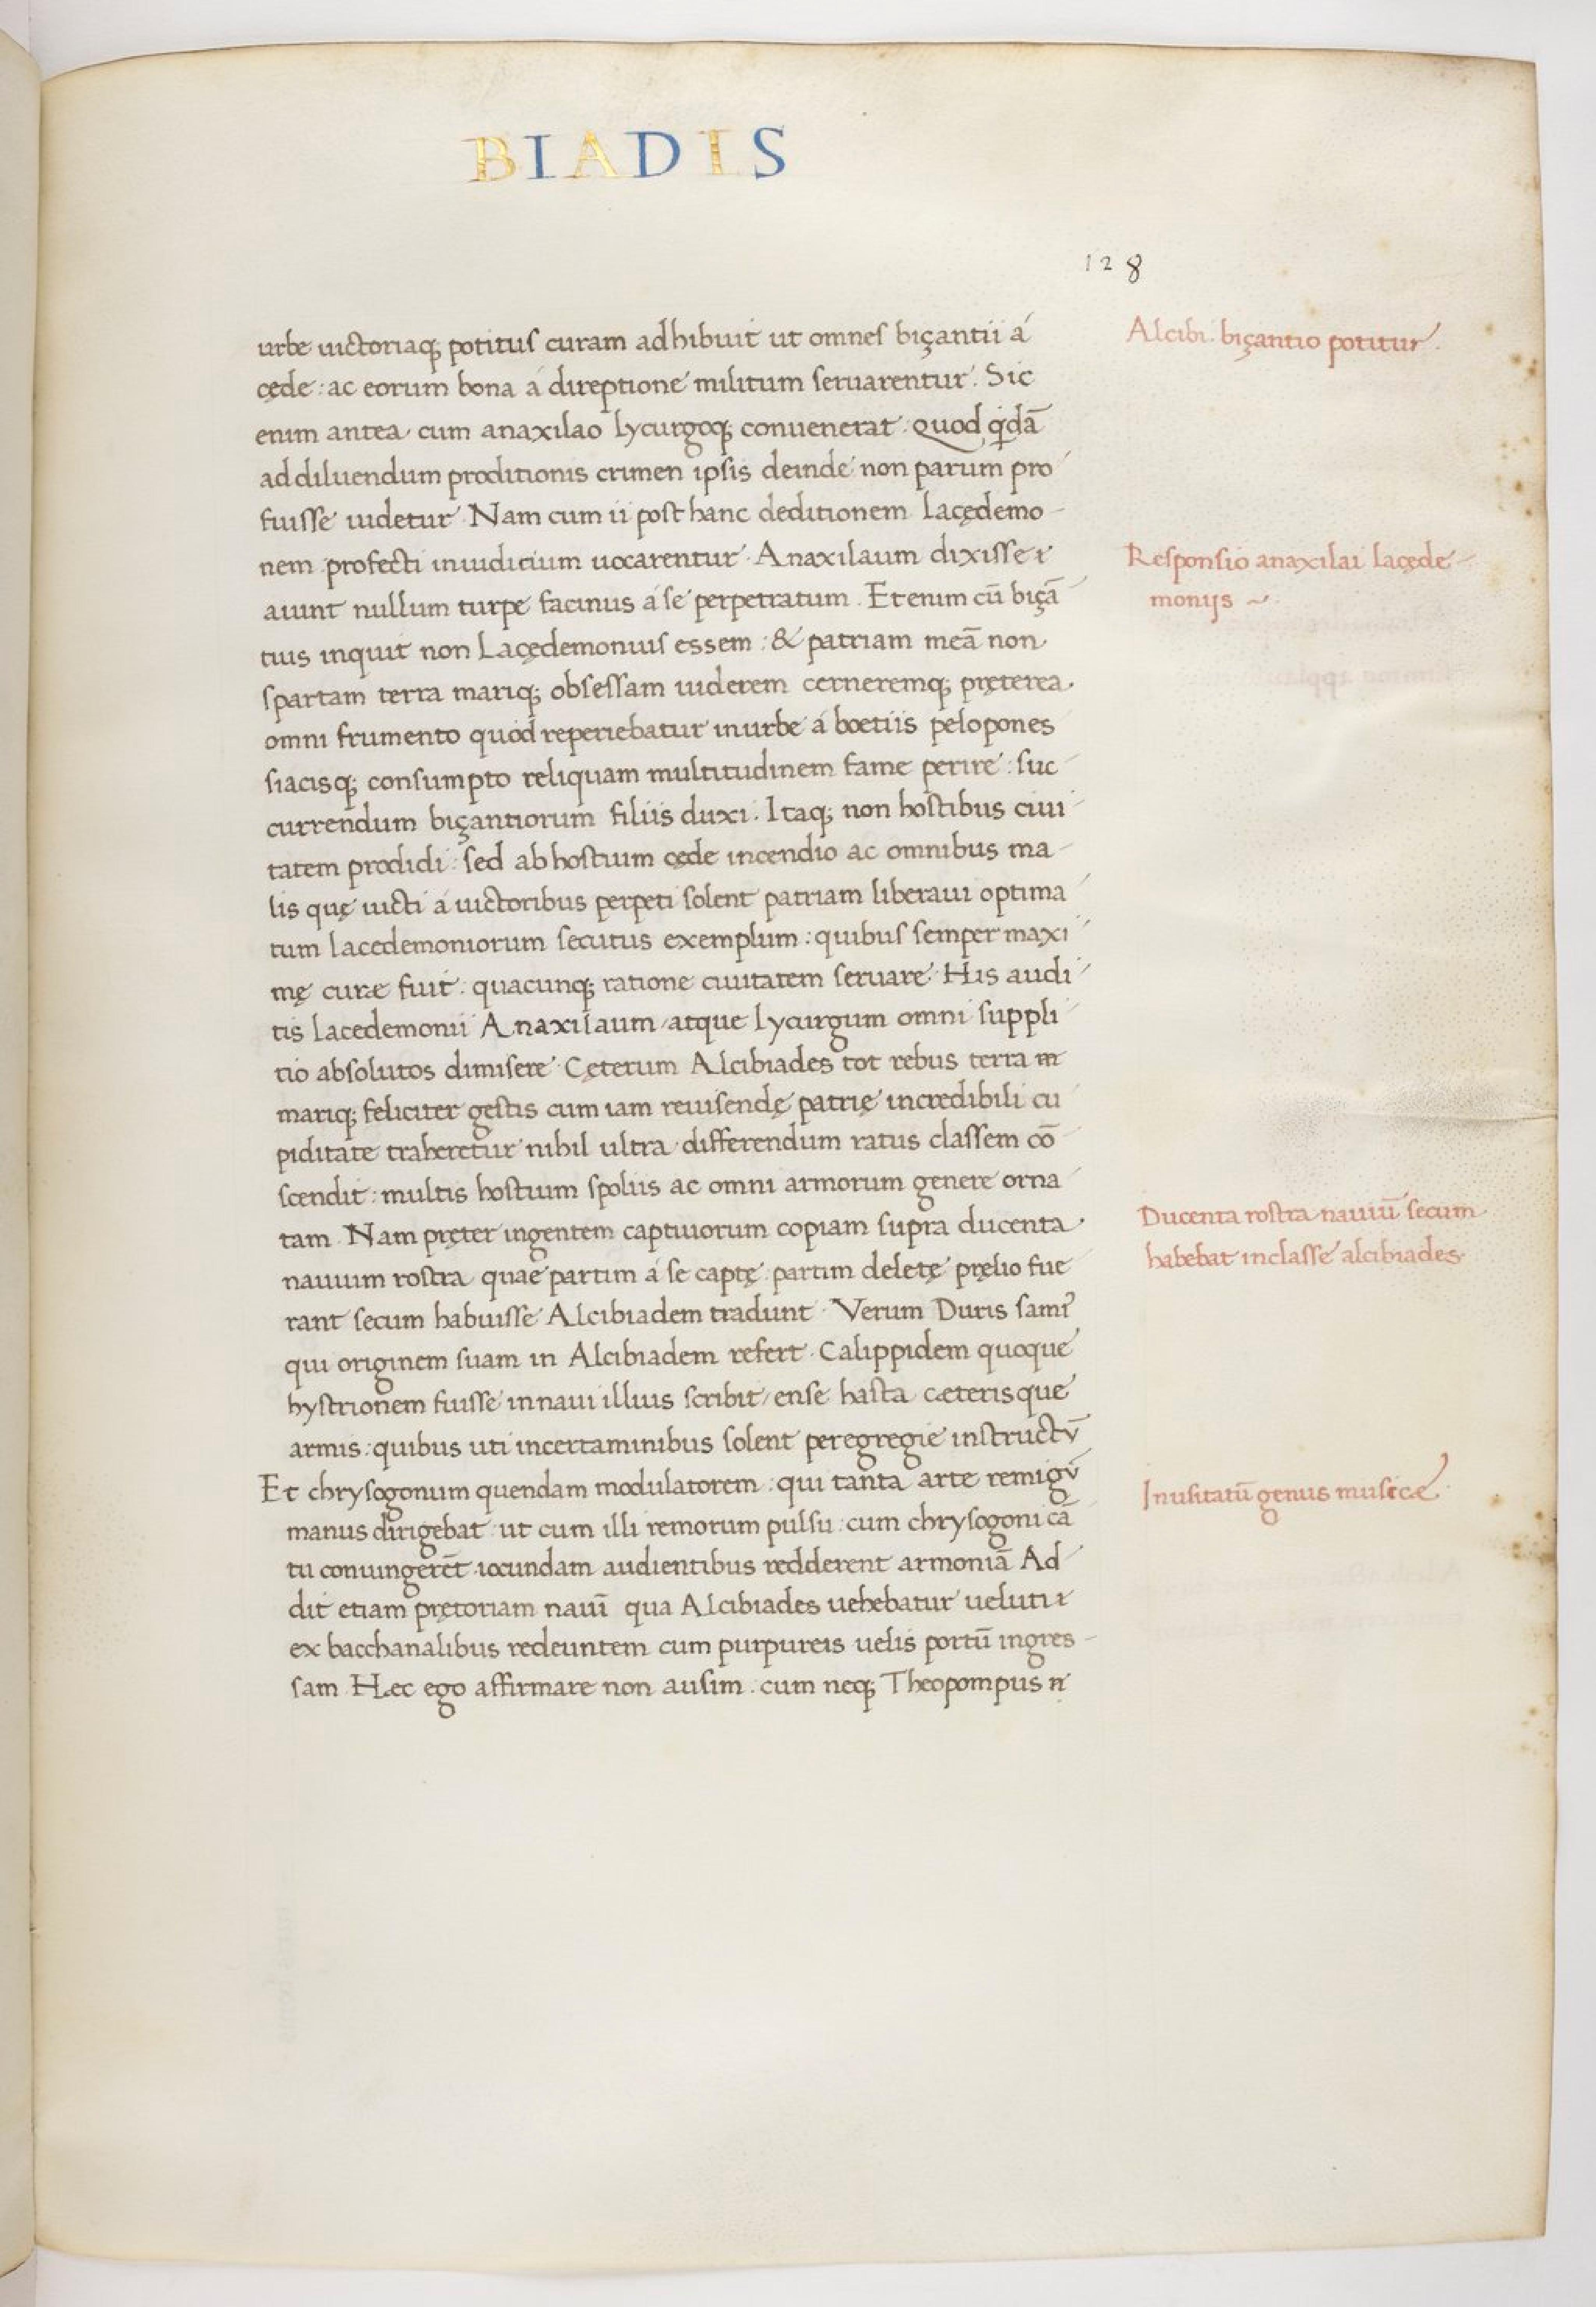 BIADIS
128
urbe uictoriaq; potitus curam adhibuit ut omnes biçantii á
cęde : ac eorum bona á direptione militum seruarentur. Sic
enim antea cum anaxilao lycurgoq; conuenerat. Quod q̇dā
ad diluendum proditionis crimen ipsis deinde non parum pro
fuisse uidetur. Nam cum ii post hanc deditionem lacędemo-
nem profecti in iudicium uocarentur. Anaxilaum dixisse
aiunt nullum turpe facinus á se perpetratum. Et enim cū biçā
tius inquit non Lacędemonius essem : & patriam meā non
spartam terra mariq; obsessam uiderem cerneremq; pręterea
omni frumento quod reperiebatur in urbe á boetiis pelopones
siacisq; consumpto reliquam multitudinem fame perire : suc
currendum biçantiorum filiis duxi. Itaq; non hostibus ciui
tatem prodidi : sed ab hostium cęde incendio ac omnibus ma
lis quę uicti á uictoribus perpeti solent patriam liberaui optima
tum lacedemoniorum secutus exemplum : quibus semper maxi
mę curæ fuit : quacunq; ratione ciuitatem seruare. His audi
tis lacedemonii Anaxilaum atque lycurgum omni suppli
tio absolutos dimisere. Cęterum Alcibiades tot rebus terra m
mariq; feliciter gestis cum iam reuisendę patrię incredibili cu
piditate traheretur nihil ultra differendum ratus classem cō
scendit : multis hostium spoliis ac omni armorum genere orna
tam. Nam pręter ingentem captiuorum copiam supra ducenta
nauium rostra quae partim á se captę partim deletę pręlio fue
rant secum habuisse Alcibiadem tradunt. Verum Duris sami⁹
qui originem suam in Alcibiadem refert. Calippidem quoque
hystrionem fuisse in naui illius scribit / ense hasta cæterisque
armis : quibus uti in certaminibus solent peregregie instructū
Et chrysogonum quendam modulatorem : qui tanta arte remigū
manus dirigebat : ut cum illi remorum pulsu : cum chrysogoni cā
tu coniungerēt iocundam audientibus redderent armoniā Ad
dit etiam prętoriam nauī qua Alcibiades uehebatur ueluti
ex bacchanalibus redeuntem cum purpureis uelis portū ingres-
sam. Hæc ego affirmare non ausim : cum neq; Theopompus n
Alcibi. biçantio potitur.
Responsio anaxilai lacęde-
monijs
Ducenta rostra nauiū secum
habebat in classe alcibiades.
Inusitatū genus musicæ